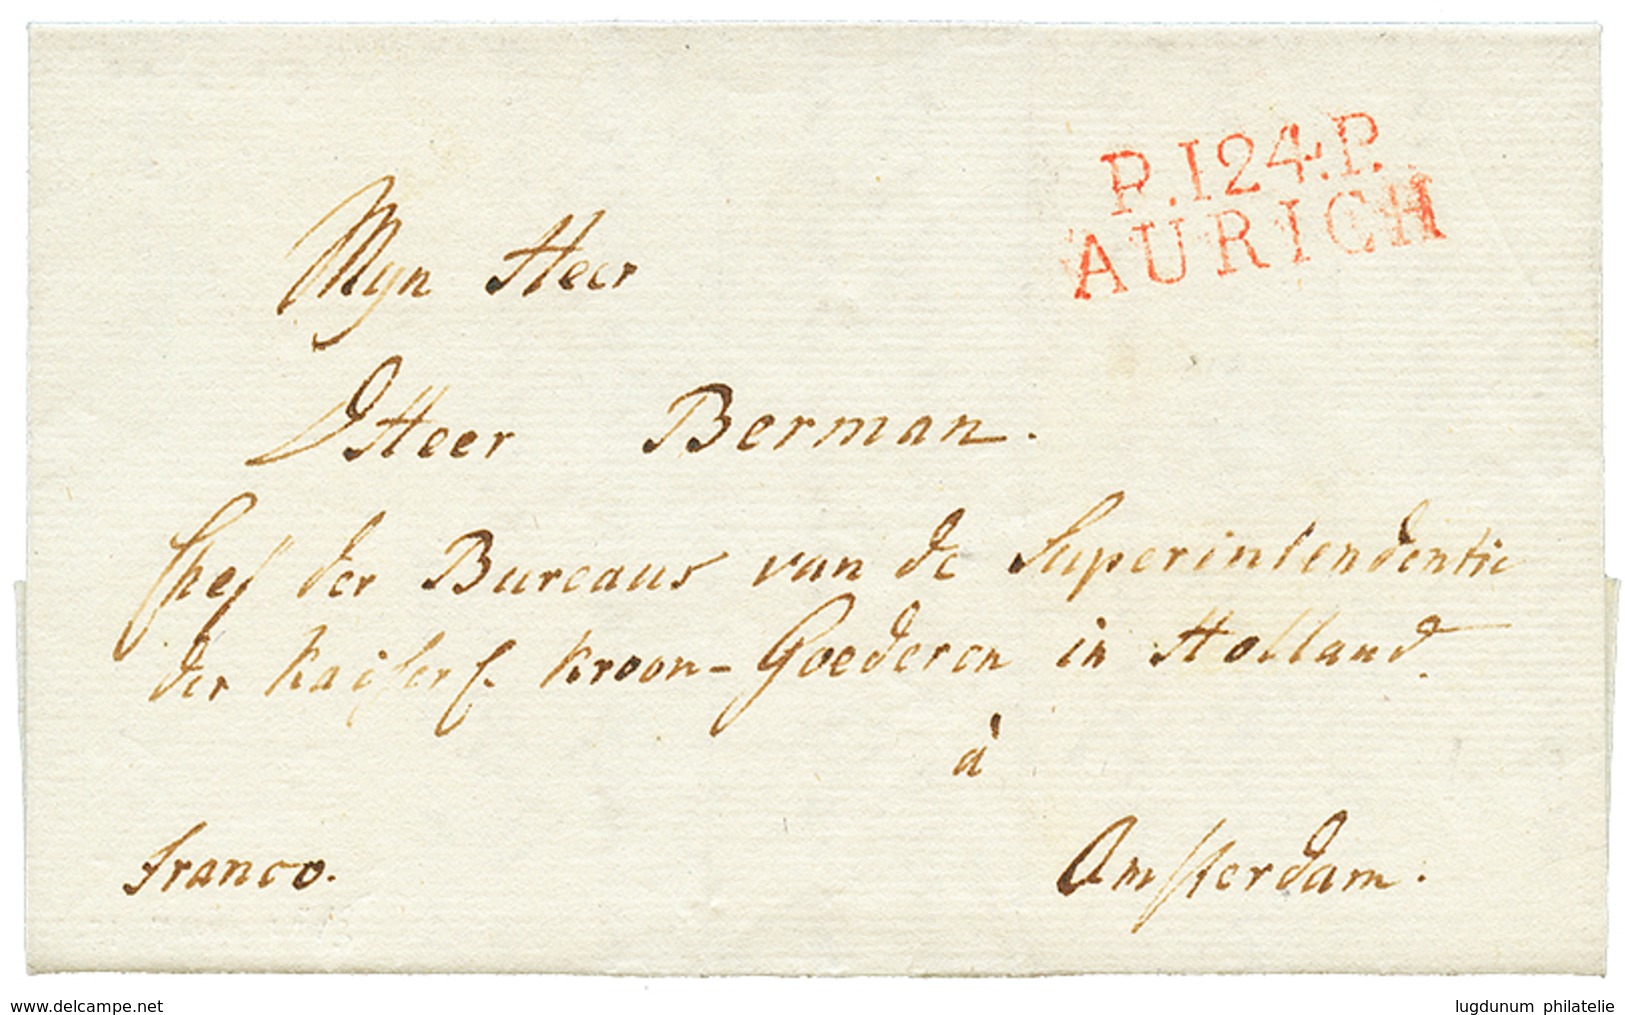 P.124.P.
AURICH
Myn Heer
D Heer Berman.
Chef der Bureaus van de Superintendentie
der Kaiserl. Kroon-Goederen in Holland.
à
Amsterdam.
franco.
www.delcampe.net
lugdunum philatelie